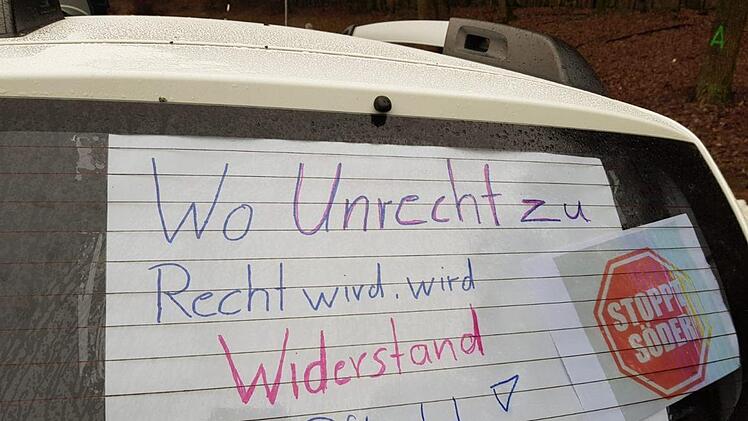 Wo Unrecht zu
Recht wird. wird
Widerstand
STOPPT
SÖDER
A